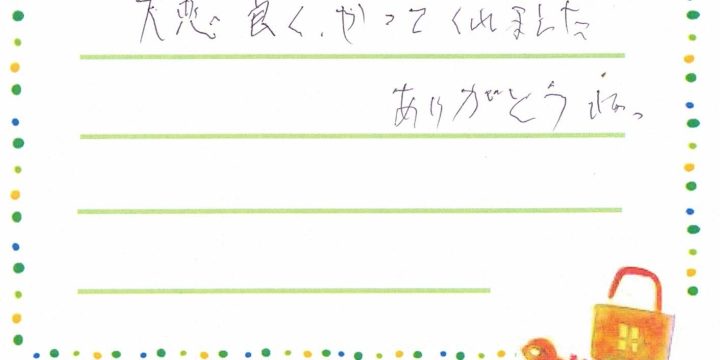 大変良く、やってくれました
ありがとうね。